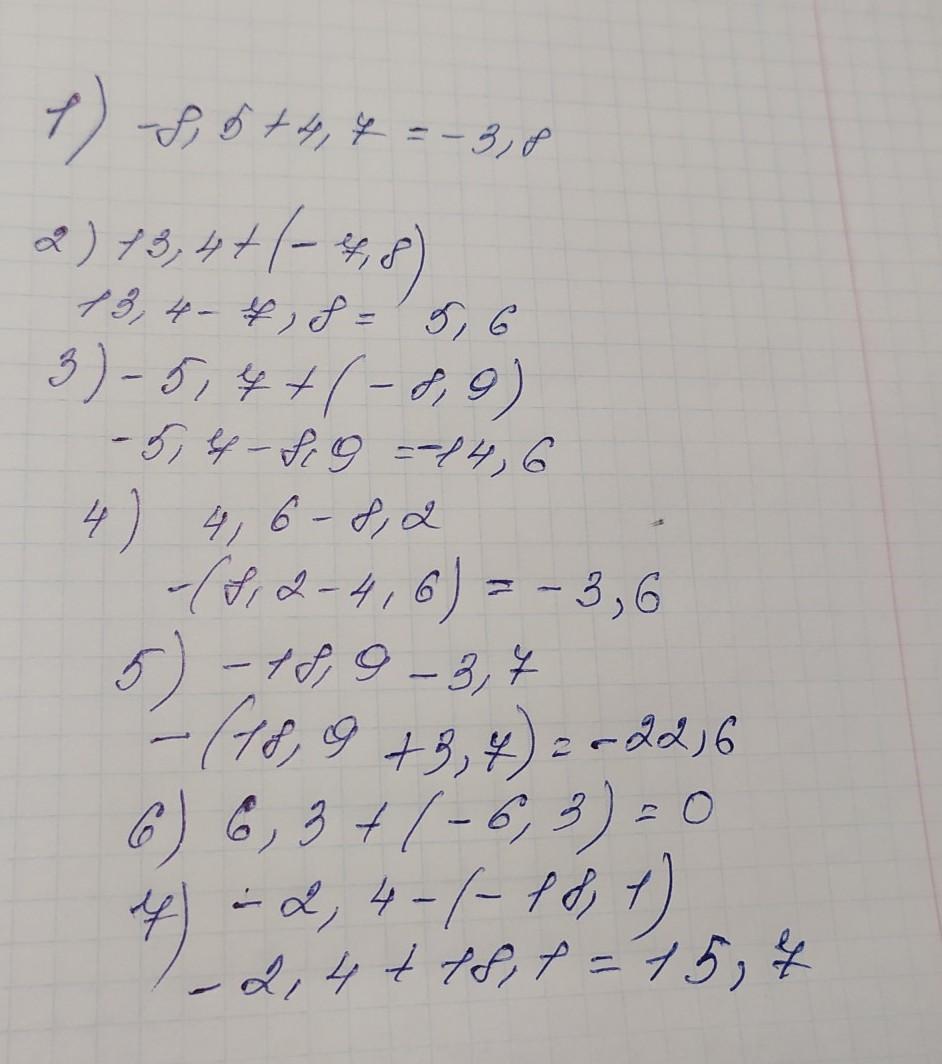 1) -8,5+4,7=-3,8
2) 13,4+(-7,8)
13,4-7,8= 5,6
3) -5,7+(-8,9)
-5,7-8,9=-14,6
4) 4,6-8,2
-(8,2-4,6)=-3,6
5) -18,9-3,7
-(18,9+3,7)=-22,6
6) 6,3+(-6,3)=0
7) -2,4-(-18,1)
-2,4+18,1=15,7